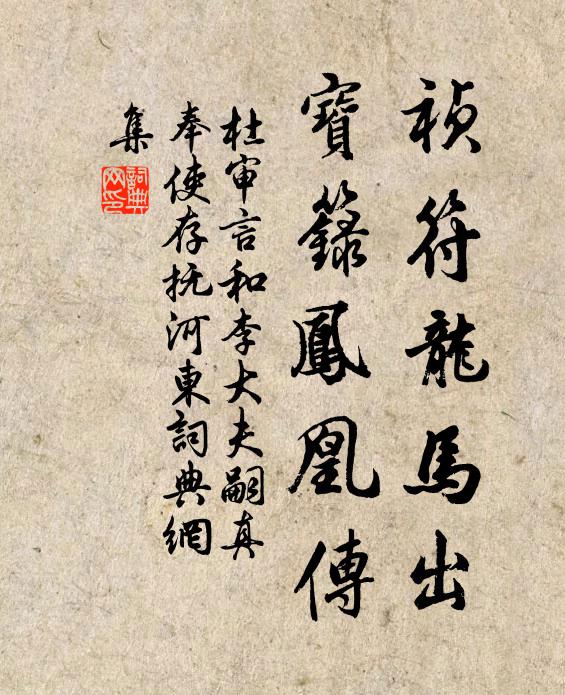 禎符龍馬出
寶籙鳳凰傳
杜审言和李大夫嗣真
奉使存抚河東詞典網
集
詞典
网印